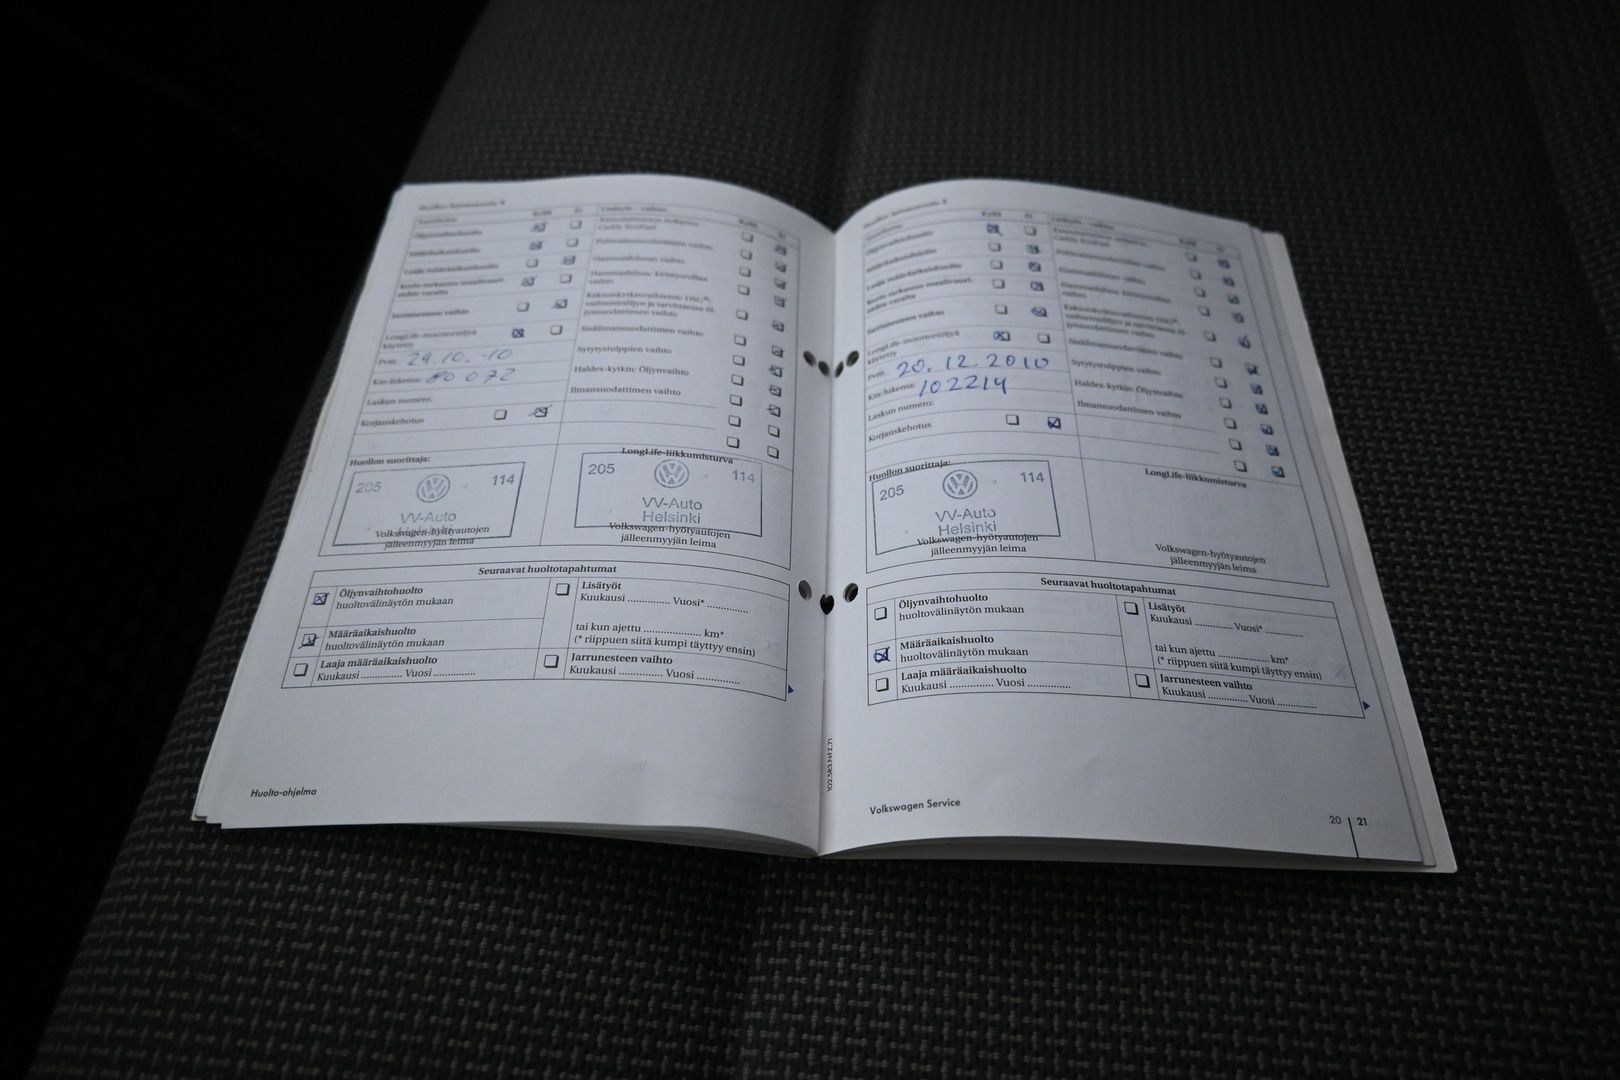 Kyllä Ei
Öljynvaihtohuolto
Määräaikaishuolto
Laaja määräaikaishuolto
Jarrunesteen vaihto
LongLife-moottoriöljyä
käytetty
Pvm. 29.10.-10
Km-lukema: 80 072
Laskun numero:
Korjauskehotus
Huollon suorittaja:
205 114
VV-Auto
Volkswagen-hyötyautojen
jälleenmyyjän leima
Caddy EcoFuel
Hammashihnan vaihto
Hammashihna: kiristysrullan
vaihto
Kaksoiskytkinvaihteisto DSG®:
vaihteistoöljyn ja tarvittaessa öl-
jynsuodattimen vaihto
Sisäilmansuodattimen vaihto
Sytytystulppien vaihto
Haldex-kytkin: Öljynvaihto
Ilmansuodattimen vaihto
LongLife-liikkumisturva
205 114
VV-Auto
Helsinki
Volkswagen-hyötyautojen
jälleenmyyjän leima
Seuraavat huoltotapahtumat
Öljynvaihtohuolto
huoltovälinäytön mukaan
Määräaikaishuolto
huoltovälinäytön mukaan
Laaja määräaikaishuolto
Kuukausi .............. Vuosi ..............
Lisätyöt
Kuukausi .............. Vuosi* ..............
tai kun ajettu .................... km*
(* riippuen siitä kumpi täyttyy ensin)
Jarrunesteen vaihto
Kuukausi .............. Vuosi ..............
Huolto-ohjelma
102.5R3.NFZ.71
Kyllä Ei
Öljynvaihtohuolto
Määräaikaishuolto
Laaja määräaikaishuolto
Jarrunesteen vaihto
LongLife-moottoriöljyä
käytetty
Pvm. 20.12.2010
Km-lukema: 102214
Laskun numero:
Korjauskehotus
Huollon suorittaja:
205 114
VV-Auto
Helsinki
Volkswagen-hyötyautojen
jälleenmyyjän leima
Caddy EcoFuel
Hammashihnan vaihto
Hammashihna: kiristysrullan
vaihto
Kaksoiskytkinvaihteisto DSG®:
vaihteistoöljyn ja tarvittaessa öl-
jynsuodattimen vaihto
Sisäilmansuodattimen vaihto
Sytytystulppien vaihto
Haldex-kytkin: Öljynvaihto
Ilmansuodattimen vaihto
LongLife-liikkumisturva
Volkswagen-hyötyautojen
jälleenmyyjän leima
Seuraavat huoltotapahtumat
Öljynvaihtohuolto
huoltovälinäytön mukaan
Määräaikaishuolto
huoltovälinäytön mukaan
Laaja määräaikaishuolto
Kuukausi .............. Vuosi ..............
Lisätyöt
Kuukausi .............. Vuosi* ..............
tai kun ajettu .................... km*
(* riippuen siitä kumpi täyttyy ensin)
Jarrunesteen vaihto
Kuukausi .............. Vuosi ..............
Volkswagen Service
20 21